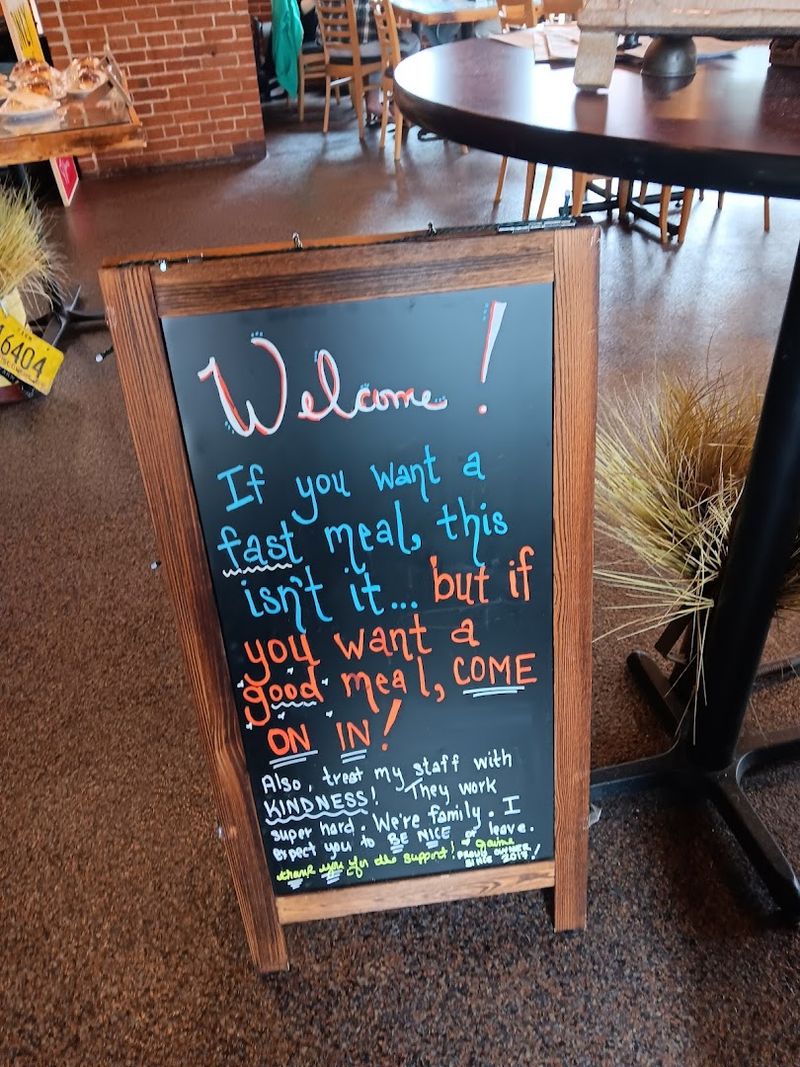 Welcome!
If you want a
fast meal, this
isn't it... but if
you want a
good meal, COME
ON IN!
Also, treat my staff with
KINDNESS! They work
super hard. We're family. I
expect you to BE NICE or leave.
thank you for the support!
PROUD OWNER
SINCE
6404